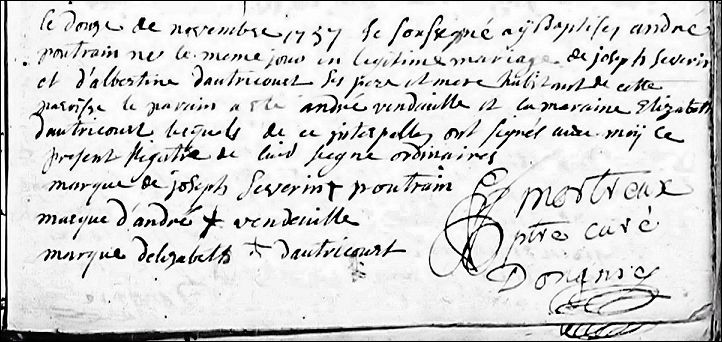 le douze de novembre 1757 Je soussigné aÿ Baptisez andré
poutrain né le meme jour en légitime mariage de joseph Severin
et d'albertine dautricourt ses pere et mere habitant de cette
paroisse le parain a esté andré vendeuille et la maraine Elizabeth
dautricourt lequels de ce interpellez ont signés avec moÿ ce
present Registre de leur signe ordinaires
marque de joseph Severin + poutrain
marque d'andré + vendeuille
marque delizabeth + dautricourt
mortreux
ptre curé